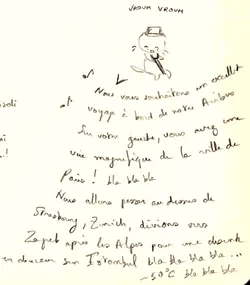 VROUM VROUM
Nous vous souhaitons un excellent
voyage à bord de notre Airbus
Sur votre gauche, vous avez une
vue magnifique de la ville de
Paris ! bla bla bla
Nous allons passer au dessus de
Strasbourg, Zurich, divions vers
Zagreb après les Alpes pour une descente
en douceur sur Istanbul bla bla bla bla ...
-50°C bla bla bla